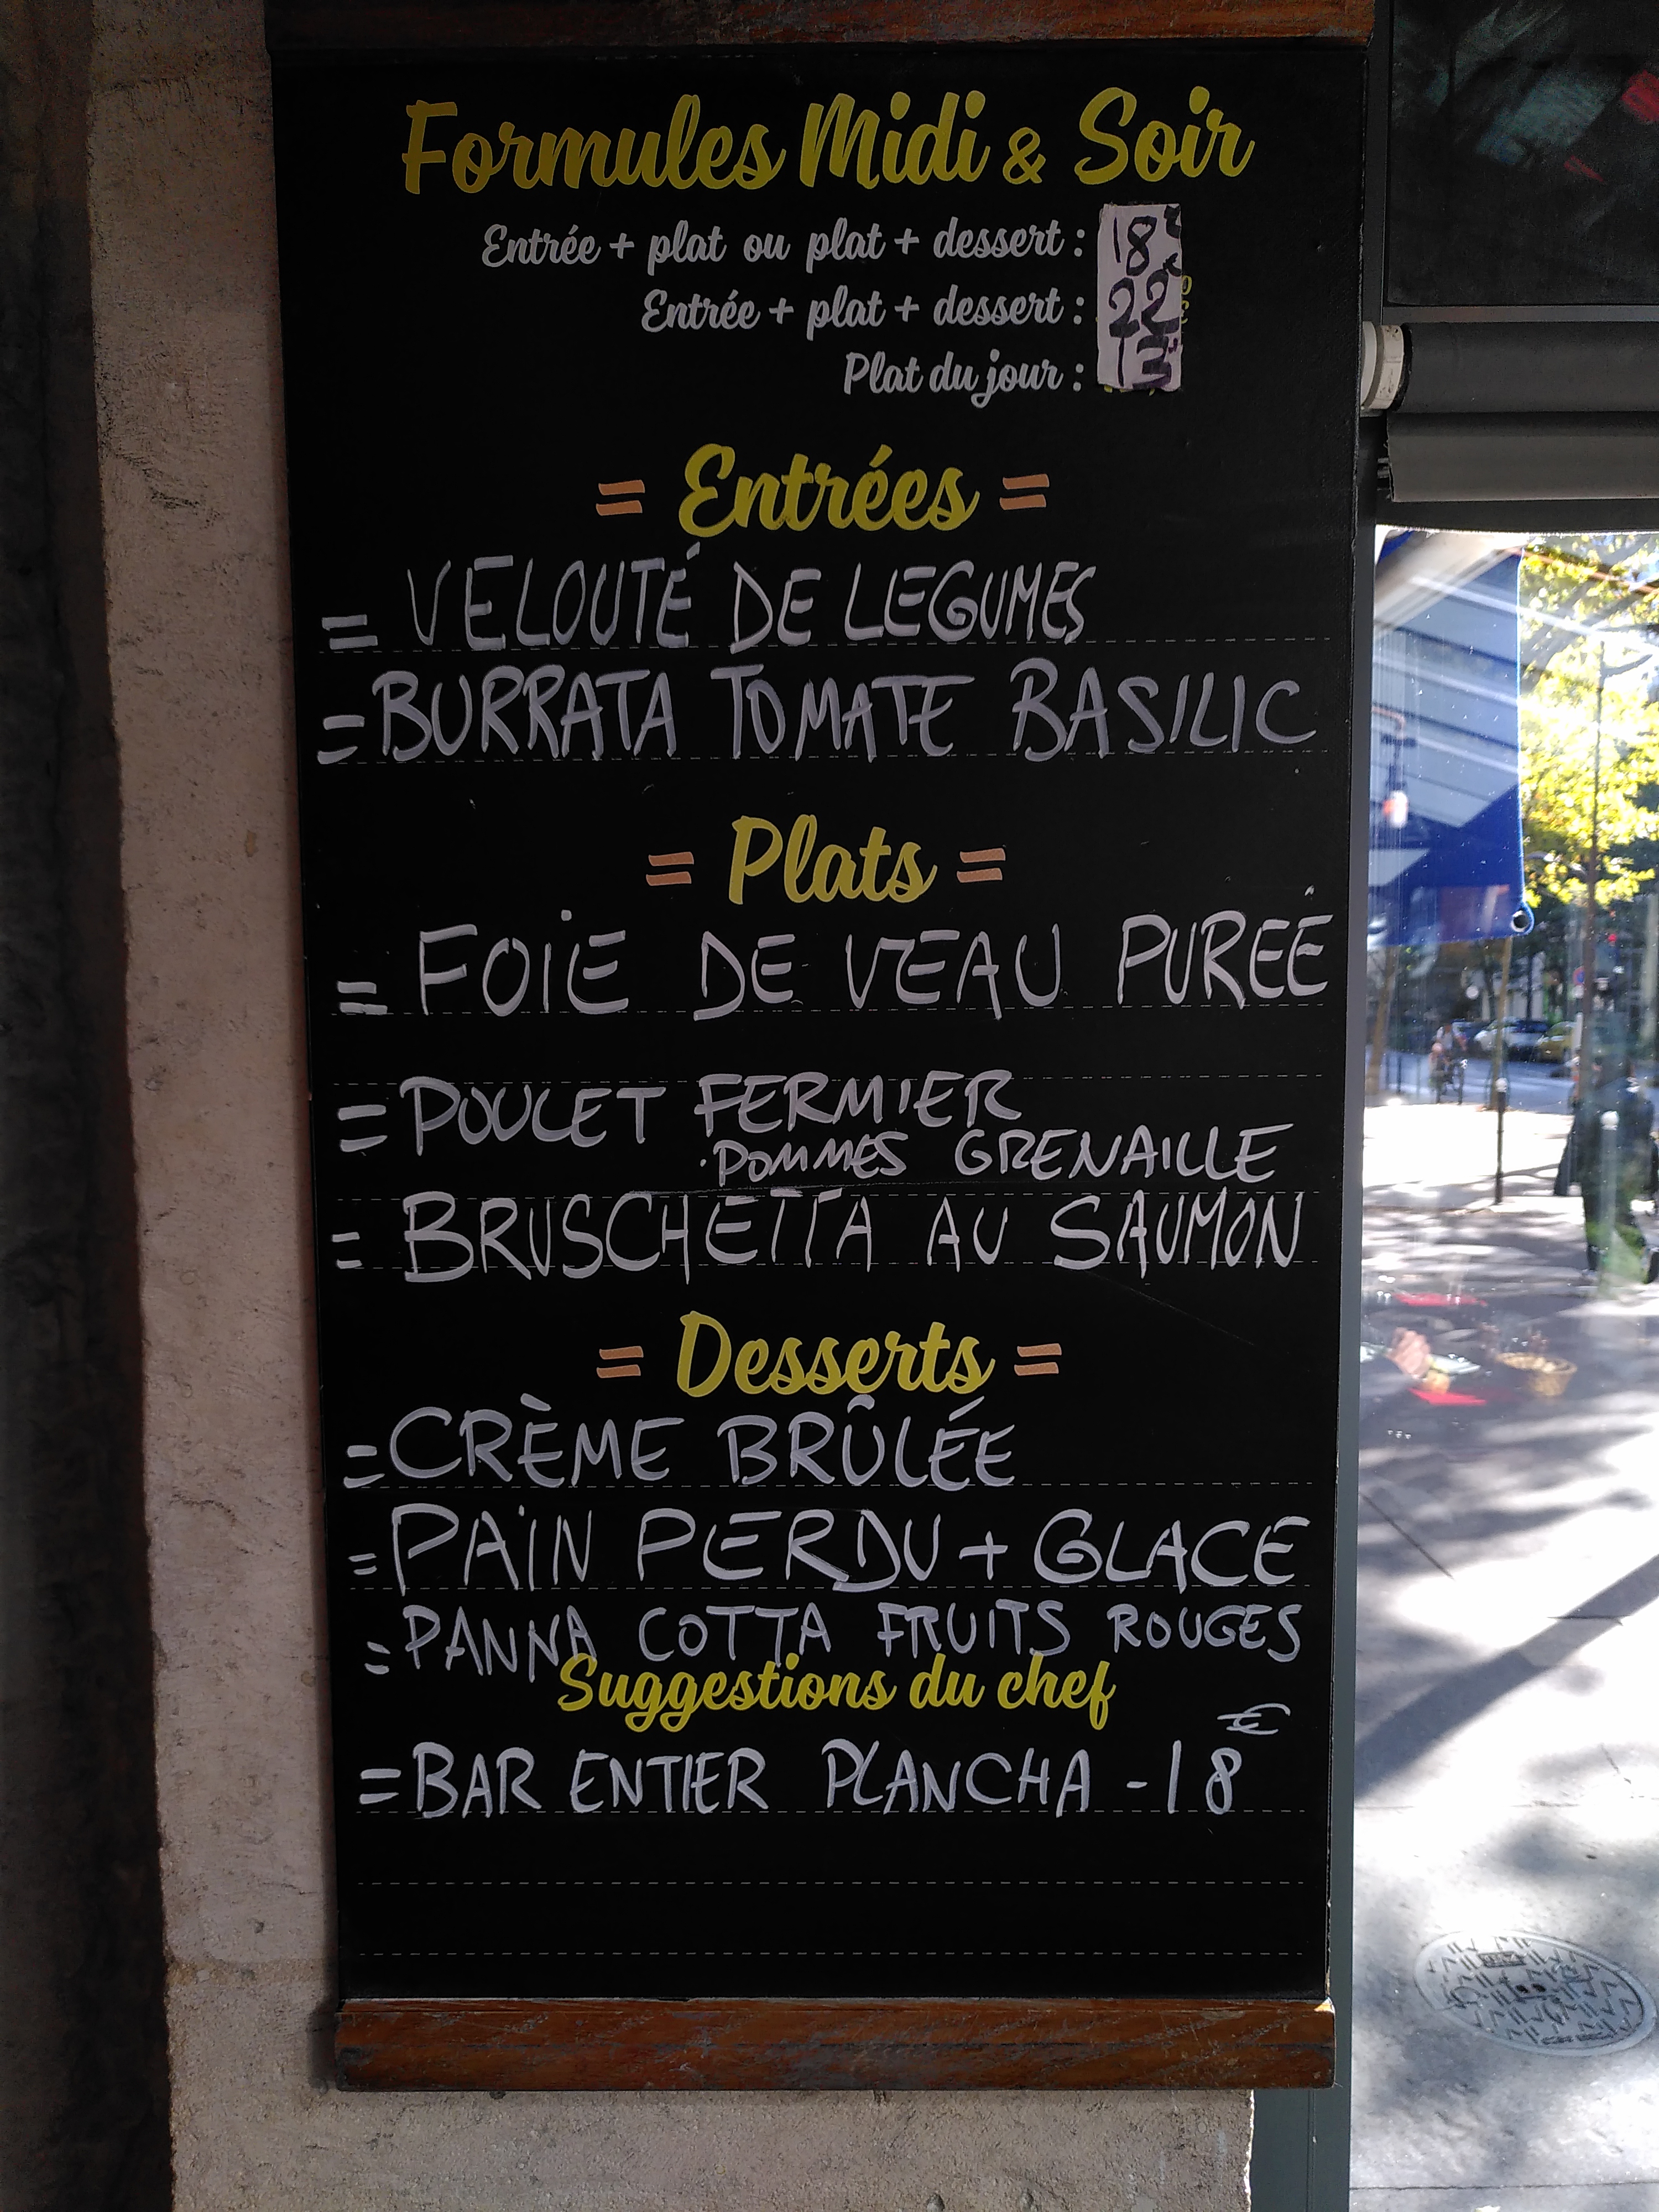 Formules Midi & Soir
Entrée + plat ou plat + dessert : 18€
Entrée + plat + dessert : 22€
Plat du jour : 13
= Entrées =
= VELOUTÉ DE LEGUMES
= BURRATA TOMATE BASILIC
= Plats =
= FOIE DE VEAU PURÉE
= POULET FERMIER
. POMMES GRENAILLE
= BRUSCHETTA AU SAUMON
= Desserts =
= CRÈME BRÛLÉE
= PAIN PERDU + GLACE
= PANNA COTTA FRUITS ROUGES
Suggestions du chef
= BAR ENTIER PLANCHA - 18€